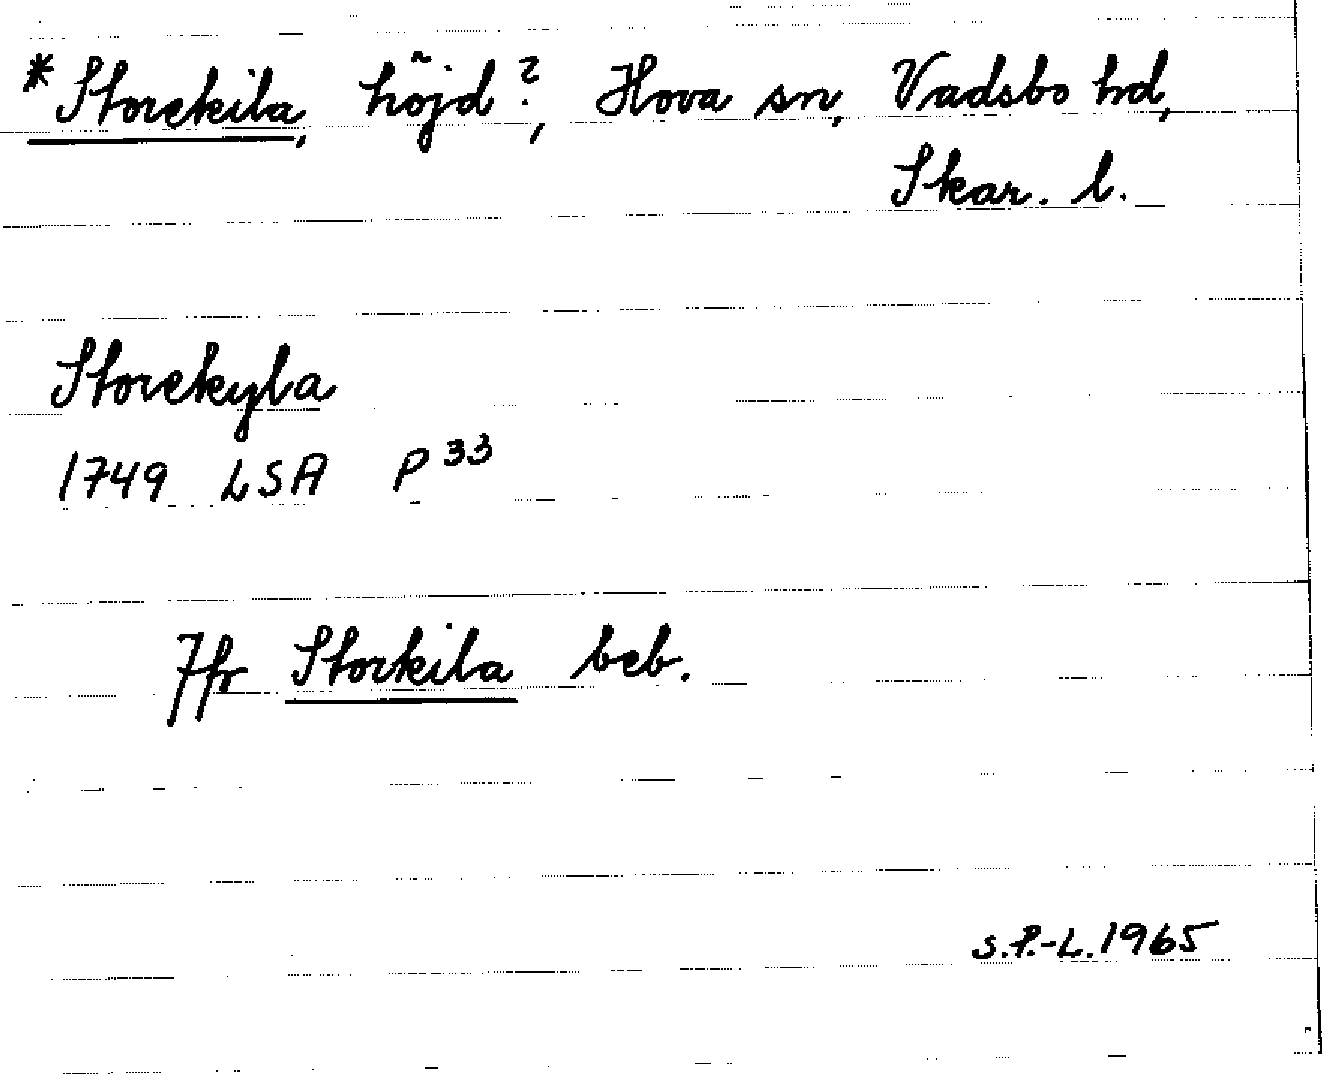 *Storekila, höjd?, Hova sn, Vadsbo hd,
Skar. l.
Storekyla
1749 LSA P 33
Jfr Storkila beb.
S.P.-L. 1965